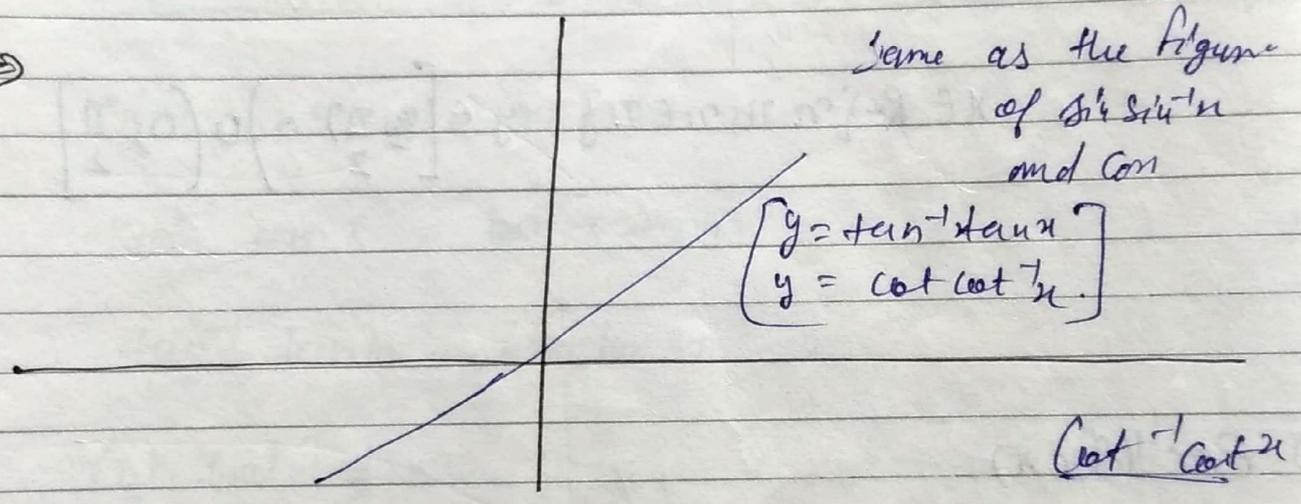 Same as the figure
of sin sin⁻¹x
and cos
y = tan⁻¹tanx
y = cot cot⁻¹x.
Cot⁻¹ cotx